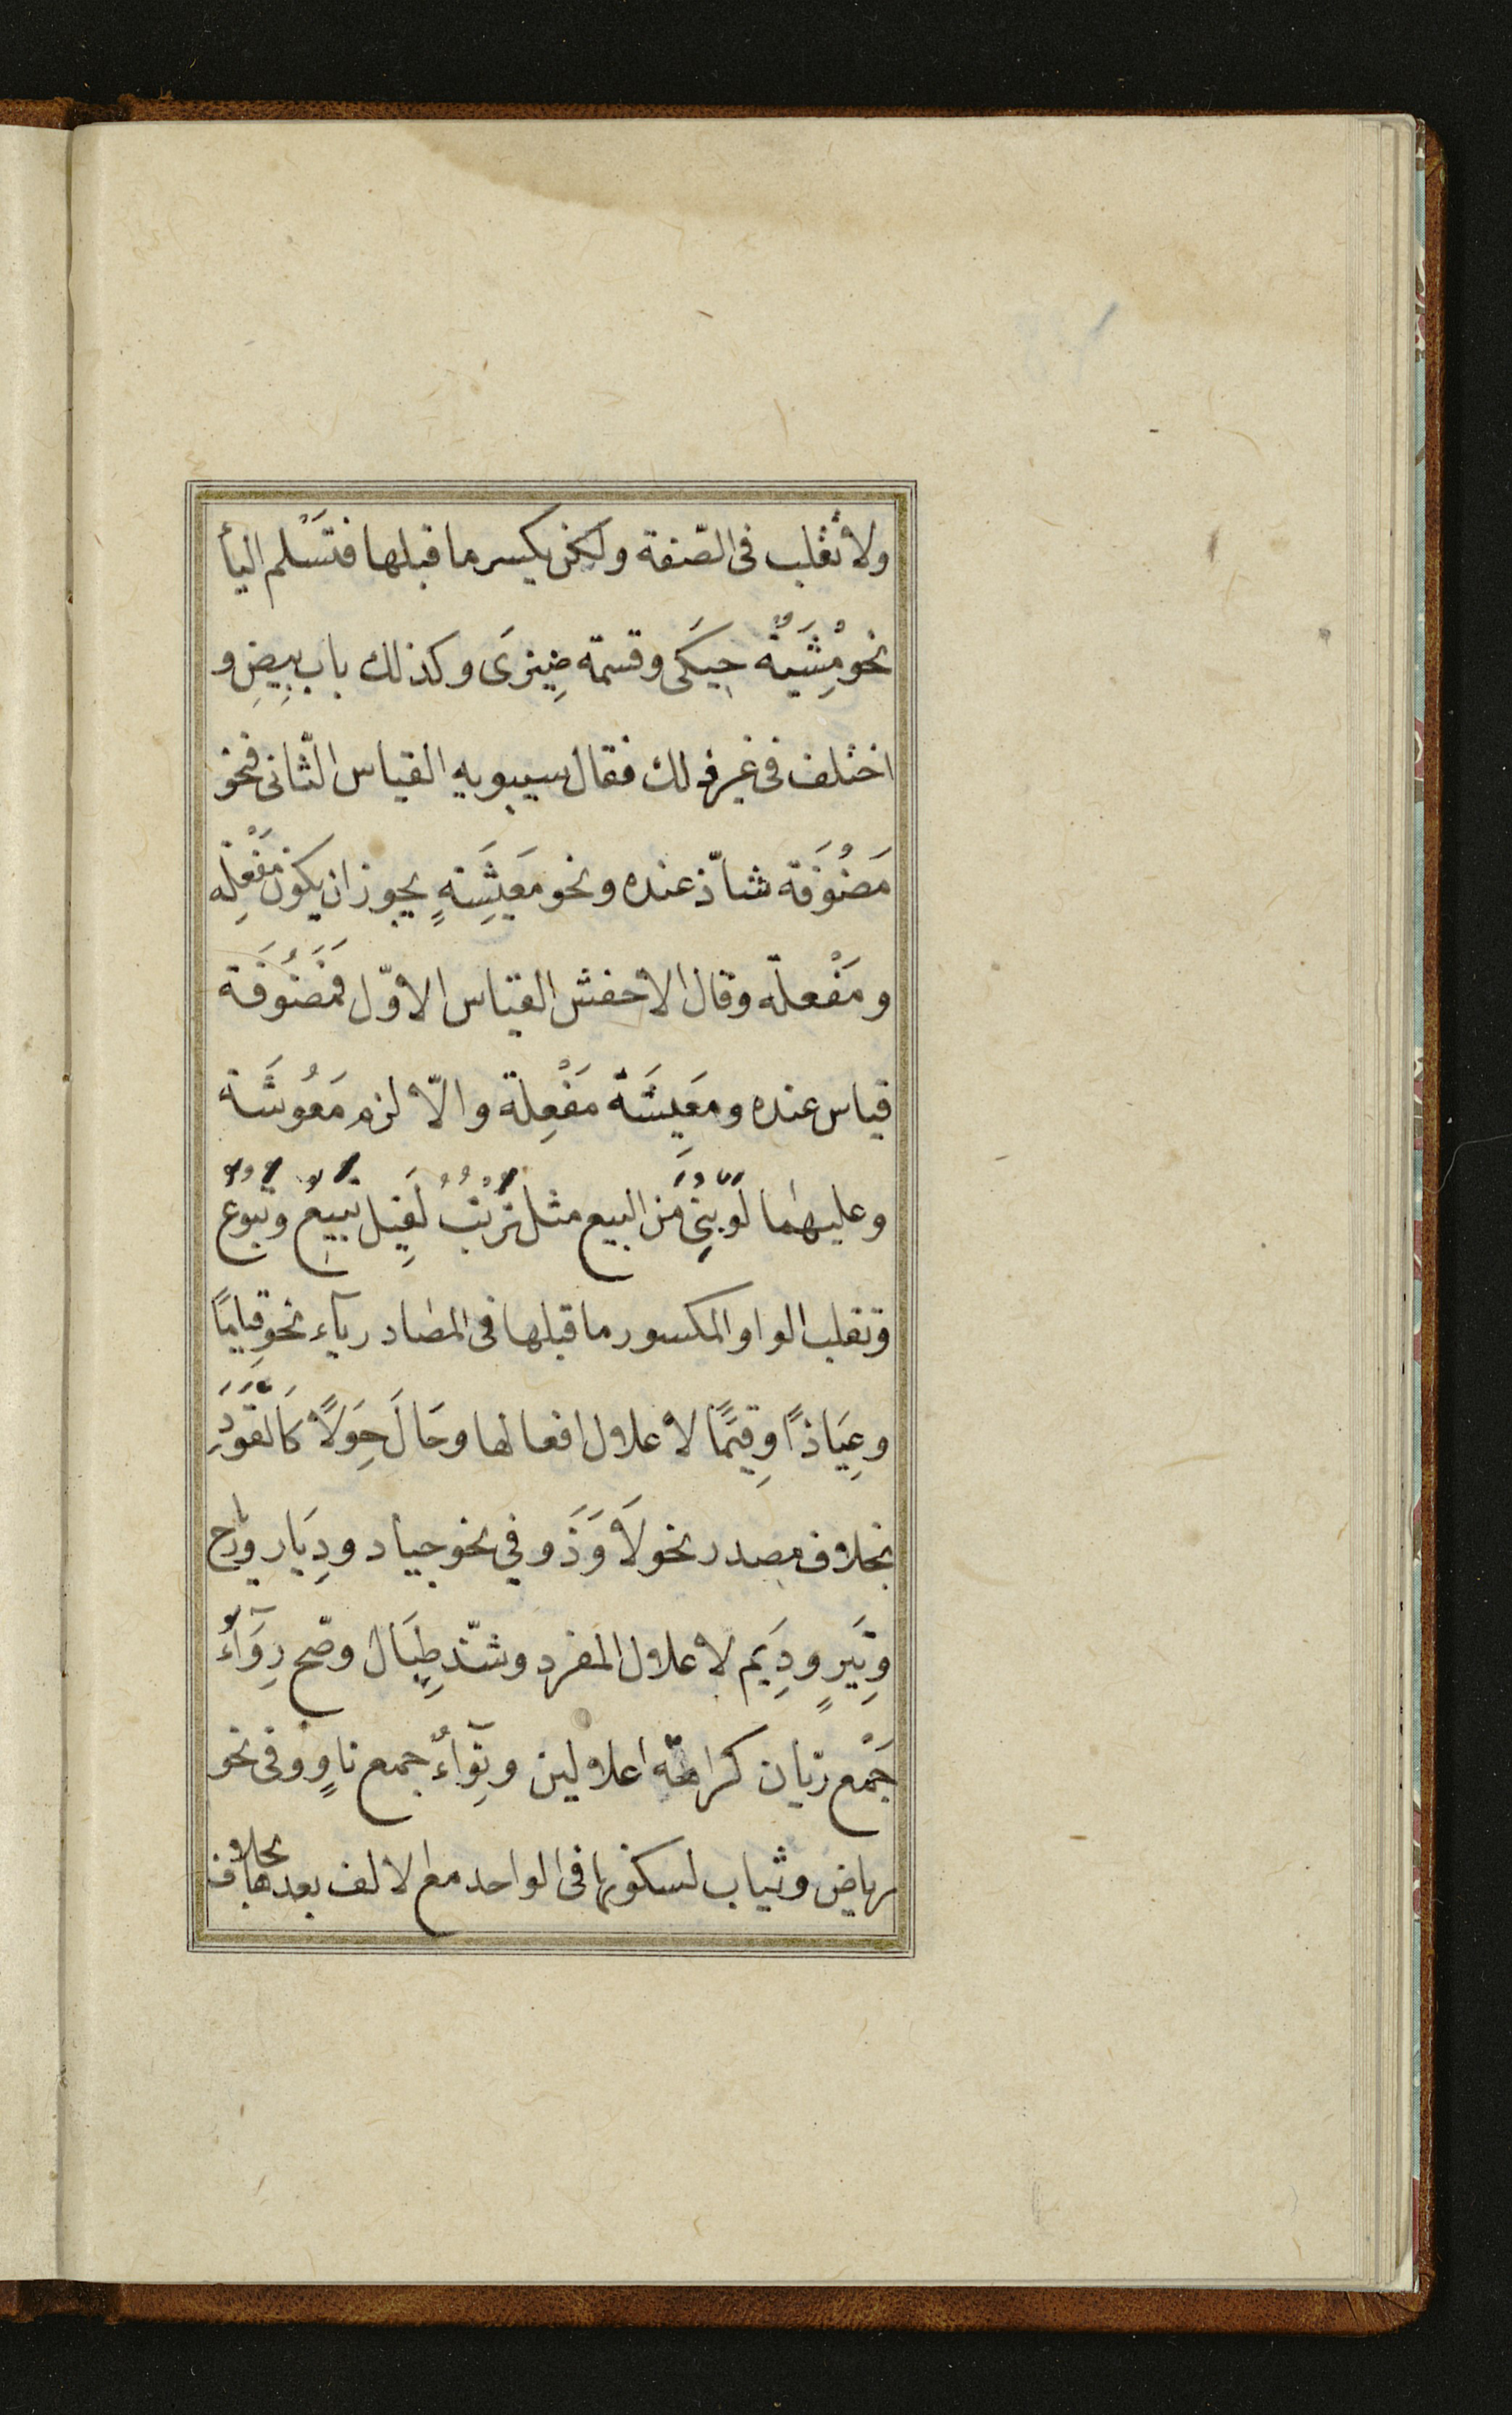 ولا تُقلب فى الصّفة ولكن يكسر ما قبلها فتَسْلم اليأ
نحو مِشْيَةٌ حِيَكَى وقسمة ضِيزَى وكذلك باب بِيضِ و
اختلف فى غير ذلك فقال سيبويه القياس الثّانى فنحو
مَضُوفَة شاذّ عنده ونحو مَعِيشَةٍ يجوز ان يكون مَفْعِلة
ومَفْعلة وقال الاخفش القياس الاوّل فَمَضُوفَة
قياس عنده ومَعِيشَة مَفْعِلة والّا لزم مَعُوشَة
وعليهما لَو بُنِىَ مِنَ البيع مثل تُرْتُبُ لَقِيل تُبِيعٌ وتُبُوعٌ
وتقلب الواو المكسور ما قبلها فى المصادر يآء نحو قِيامًا
وعِيَاذًا وقِيَمًا لاعلال افعالها وحَالَ حِوَلًا كَالقَوَدِ
بخلاف مصدر نحو لَاوَذَ وفي نحو جياد ودِيَار ورياح
وتِيَرٍ ودِيَم لاعلال المفرد وشذّ طِيَال وصّح رِوَآءٌ
جَمْع ريان كراهة اعلالين ونِوَآءٌ جمع ناوٍ وفى نحو
رياض وثياب لسكونها فى الواحد مع الالف بعدها بخلاف